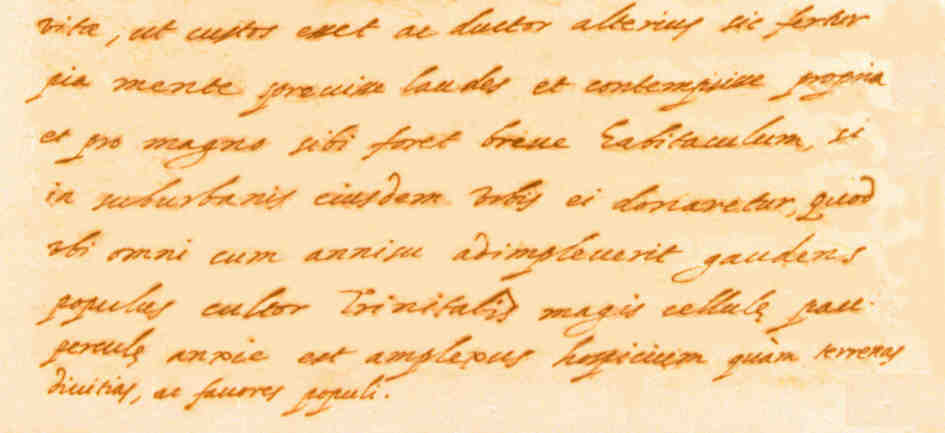 vita, ut custos esset ac ductor alterius sic fertur
pia mente sprevisse laudes et contempsisse propria
et pro magno sibi foret breue habitaculum, si
in suburbanis eiusdem Vrbis ei donaretur, quod
vbi omni cum annisu adimpleuerit gaudens
populus cultor Trinitatis magis cellulę pau
perculę anxie est amplexus hospicium quàm terrenas
diuitias, ac fauores populi.